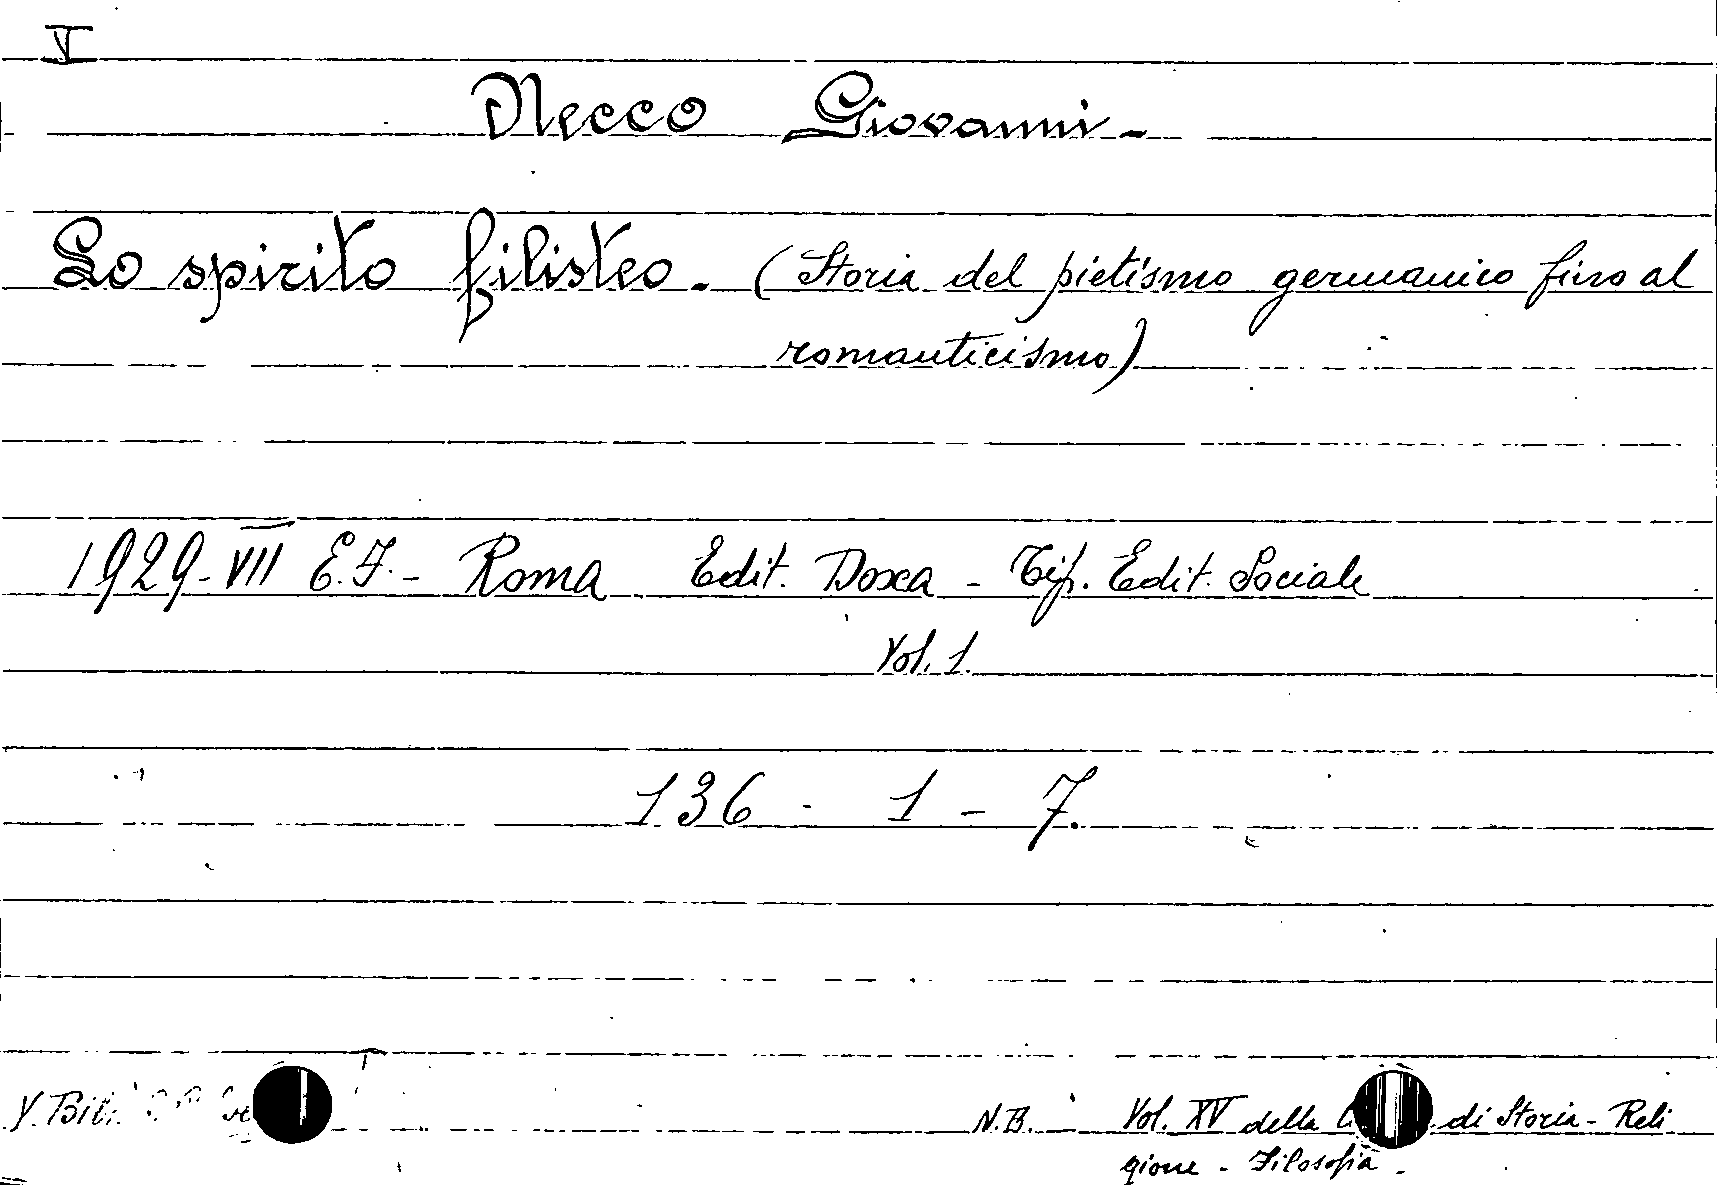 V
Necco Giovanni -
Lo spirito filisteo. (Storia del pietismo germanico fino al
romanticismo)
1929-VII E.F. - Roma Edit. Doxa - Tip. Edit. Sociale
Vol. 1.
136 - 1 - 7.
V. Bibl.
N.B. - Vol. XV della di Storia - Reli
gione - Filosofia -